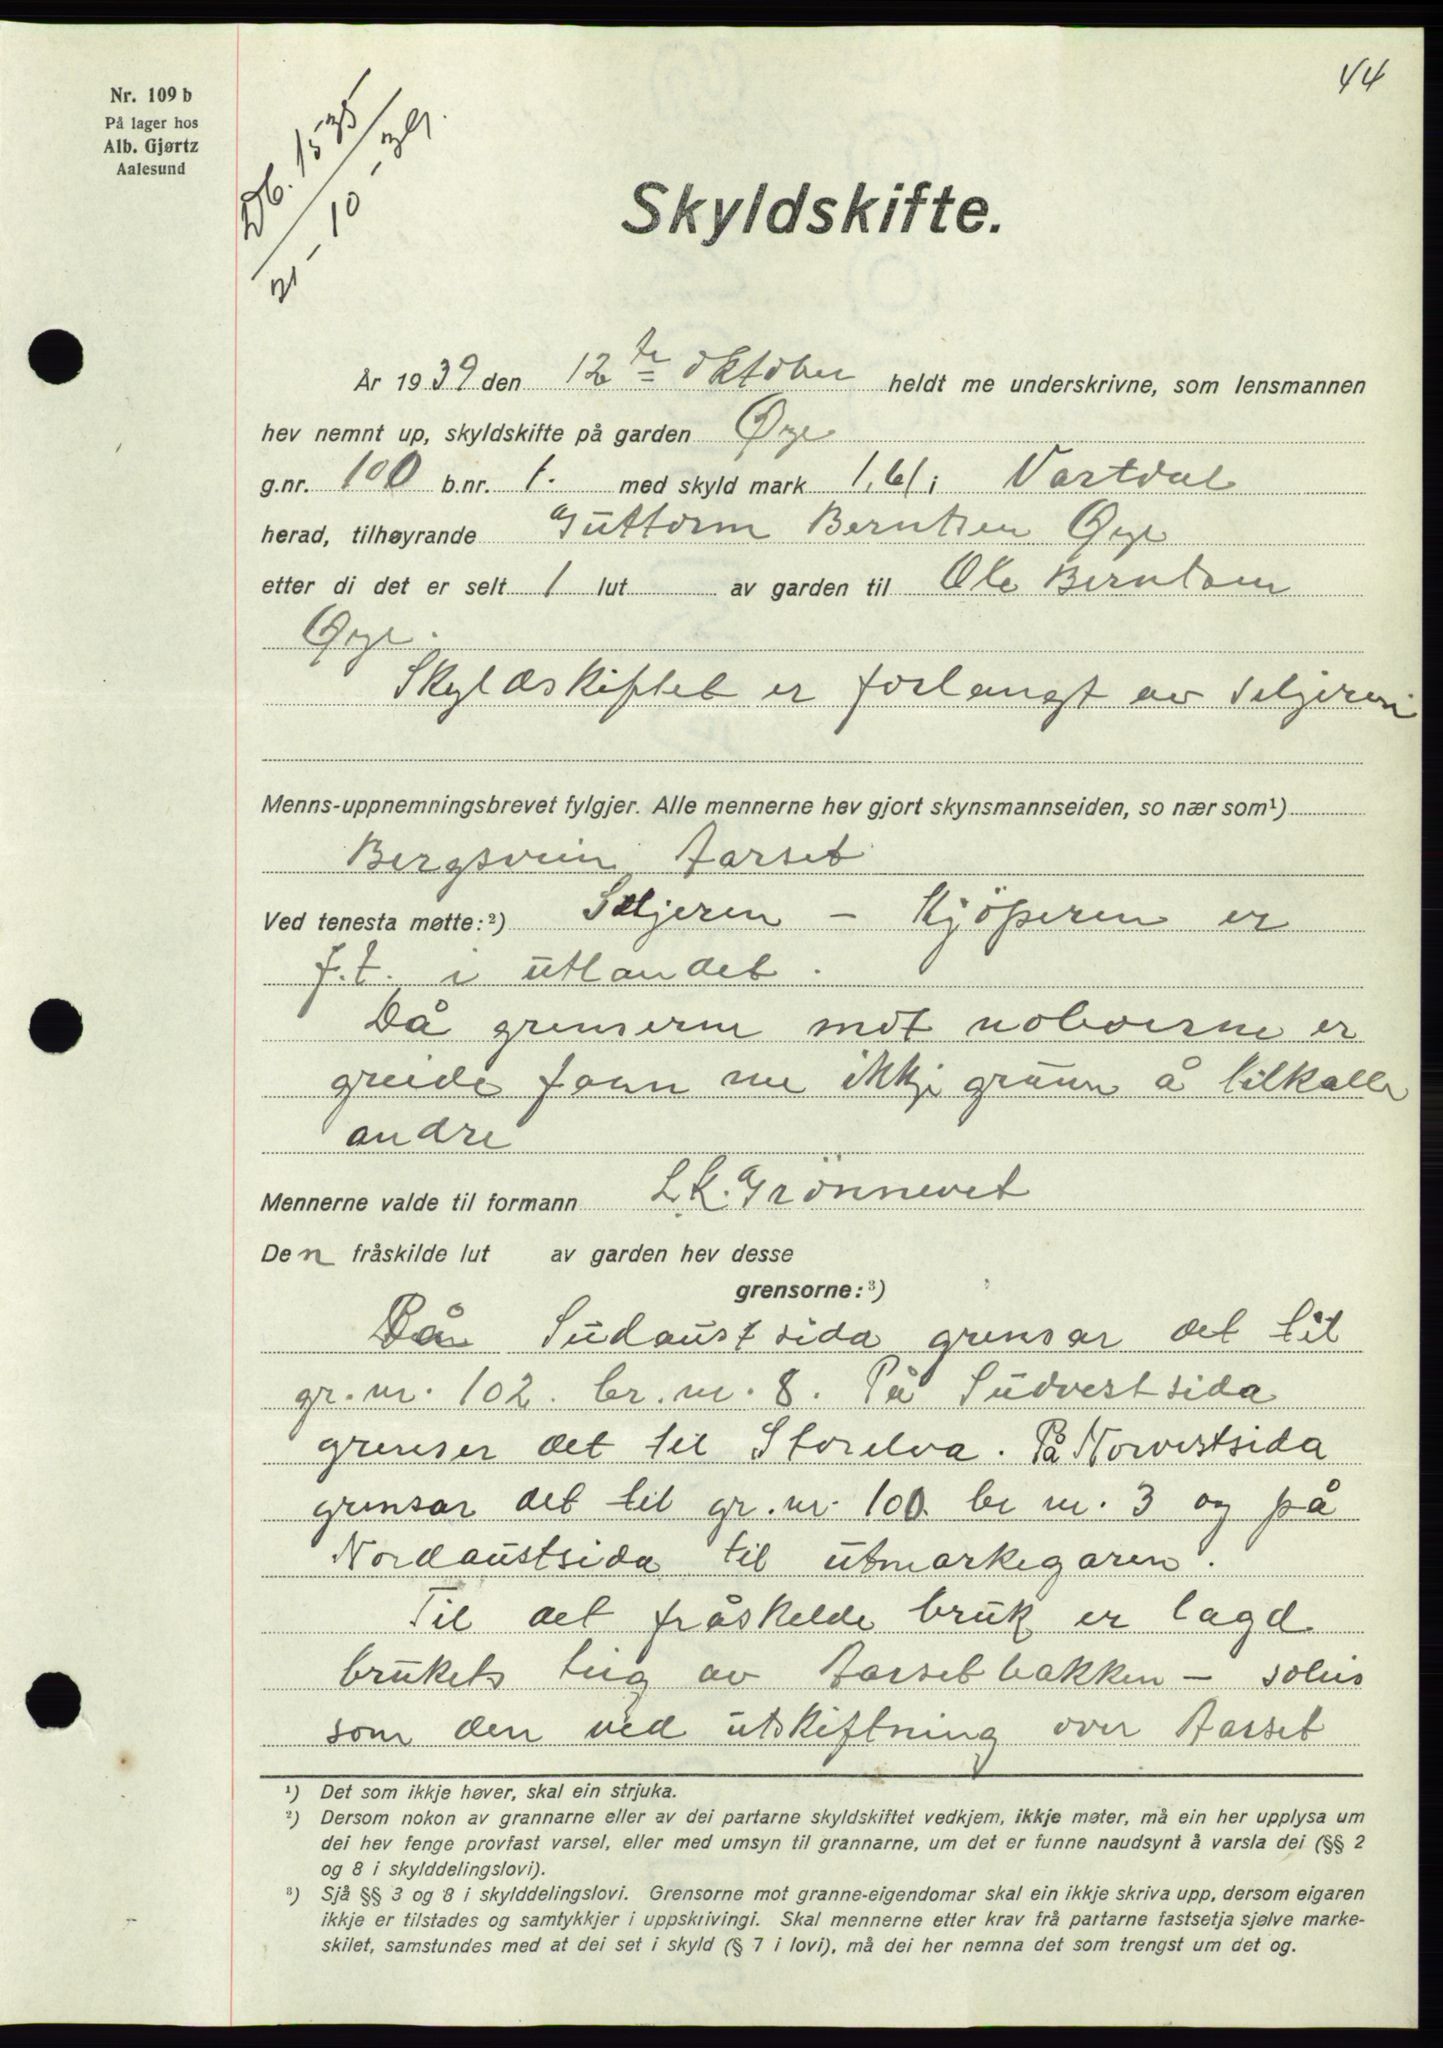 44
Nr. 109 b
På lager hos
Alb. Gjørtz
Aalesund
Db. 1535/1939
21-10-
Skyldskifte.
År 1939 den 12te oktober heldt me underskrivne, som lensmannen
hev nemnt up, skyldskifte på garden Øye
g.nr. 100 b.nr. 1. med skyld mark 1,61 i Vartdal
herad, tilhøyrande Guttorm Berntsen Øye
etter di det er selt 1 lut av garden til Ole Berntsen
Øye.
Skyldskiftet er forlangt av Seljeren
Menns-uppnemningsbrevet fylgjer. Alle mennerne hev gjort skynsmannseiden, so nær som¹)
Bergsvein Aarset
Ved tenesta møtte:²) Seljeren – Kjöperen er
f.t. i utlandet.
Då grenserne mot naboerne er
greide fann me ikkje grunn å tilkalle
andre
Mennerne valde til formann L.K. Grönnevet
Den fråskilde lut av garden hev desse
grensorne:³)
På Sudaustsida grensar det til
gr.nr. 102. br.nr. 8. På Sudvestsida
grenser det til Storelva. På Norvestsida
grensar det til gr.nr. 100 br nr. 3 og på
Nordaustsida til utmarkegaren.
Til det fråskelde bruk er lagd
brukets teig av Aarsetbakken – solies
som den ved utskiftning over Aarset
¹) Det som ikkje høver, skal ein strjuka.
²) Dersom nokon av grannarne eller av dei partarne skyldskiftet vedkjem, ikkje møter, må ein her upplysa um
dei hev fenge provfast varsel, eller med umsyn til grannarne, um det er funne naudsynt å varsla dei (§§ 2
og 8 i skylddelingslovi).
³) Sjå §§ 3 og 8 i skylddelingslovi. Grensorne mot granne-eigendomar skal ein ikkje skriva upp, dersom eigaren
ikkje er tilstades og samtykkjer i uppskrivingi. Skal mennerne etter krav frå partarne fastsetja sjølve marke-
skilet, samstundes med at dei set i skyld (§ 7 i lovi), må dei her nemna det som trengst um det og.